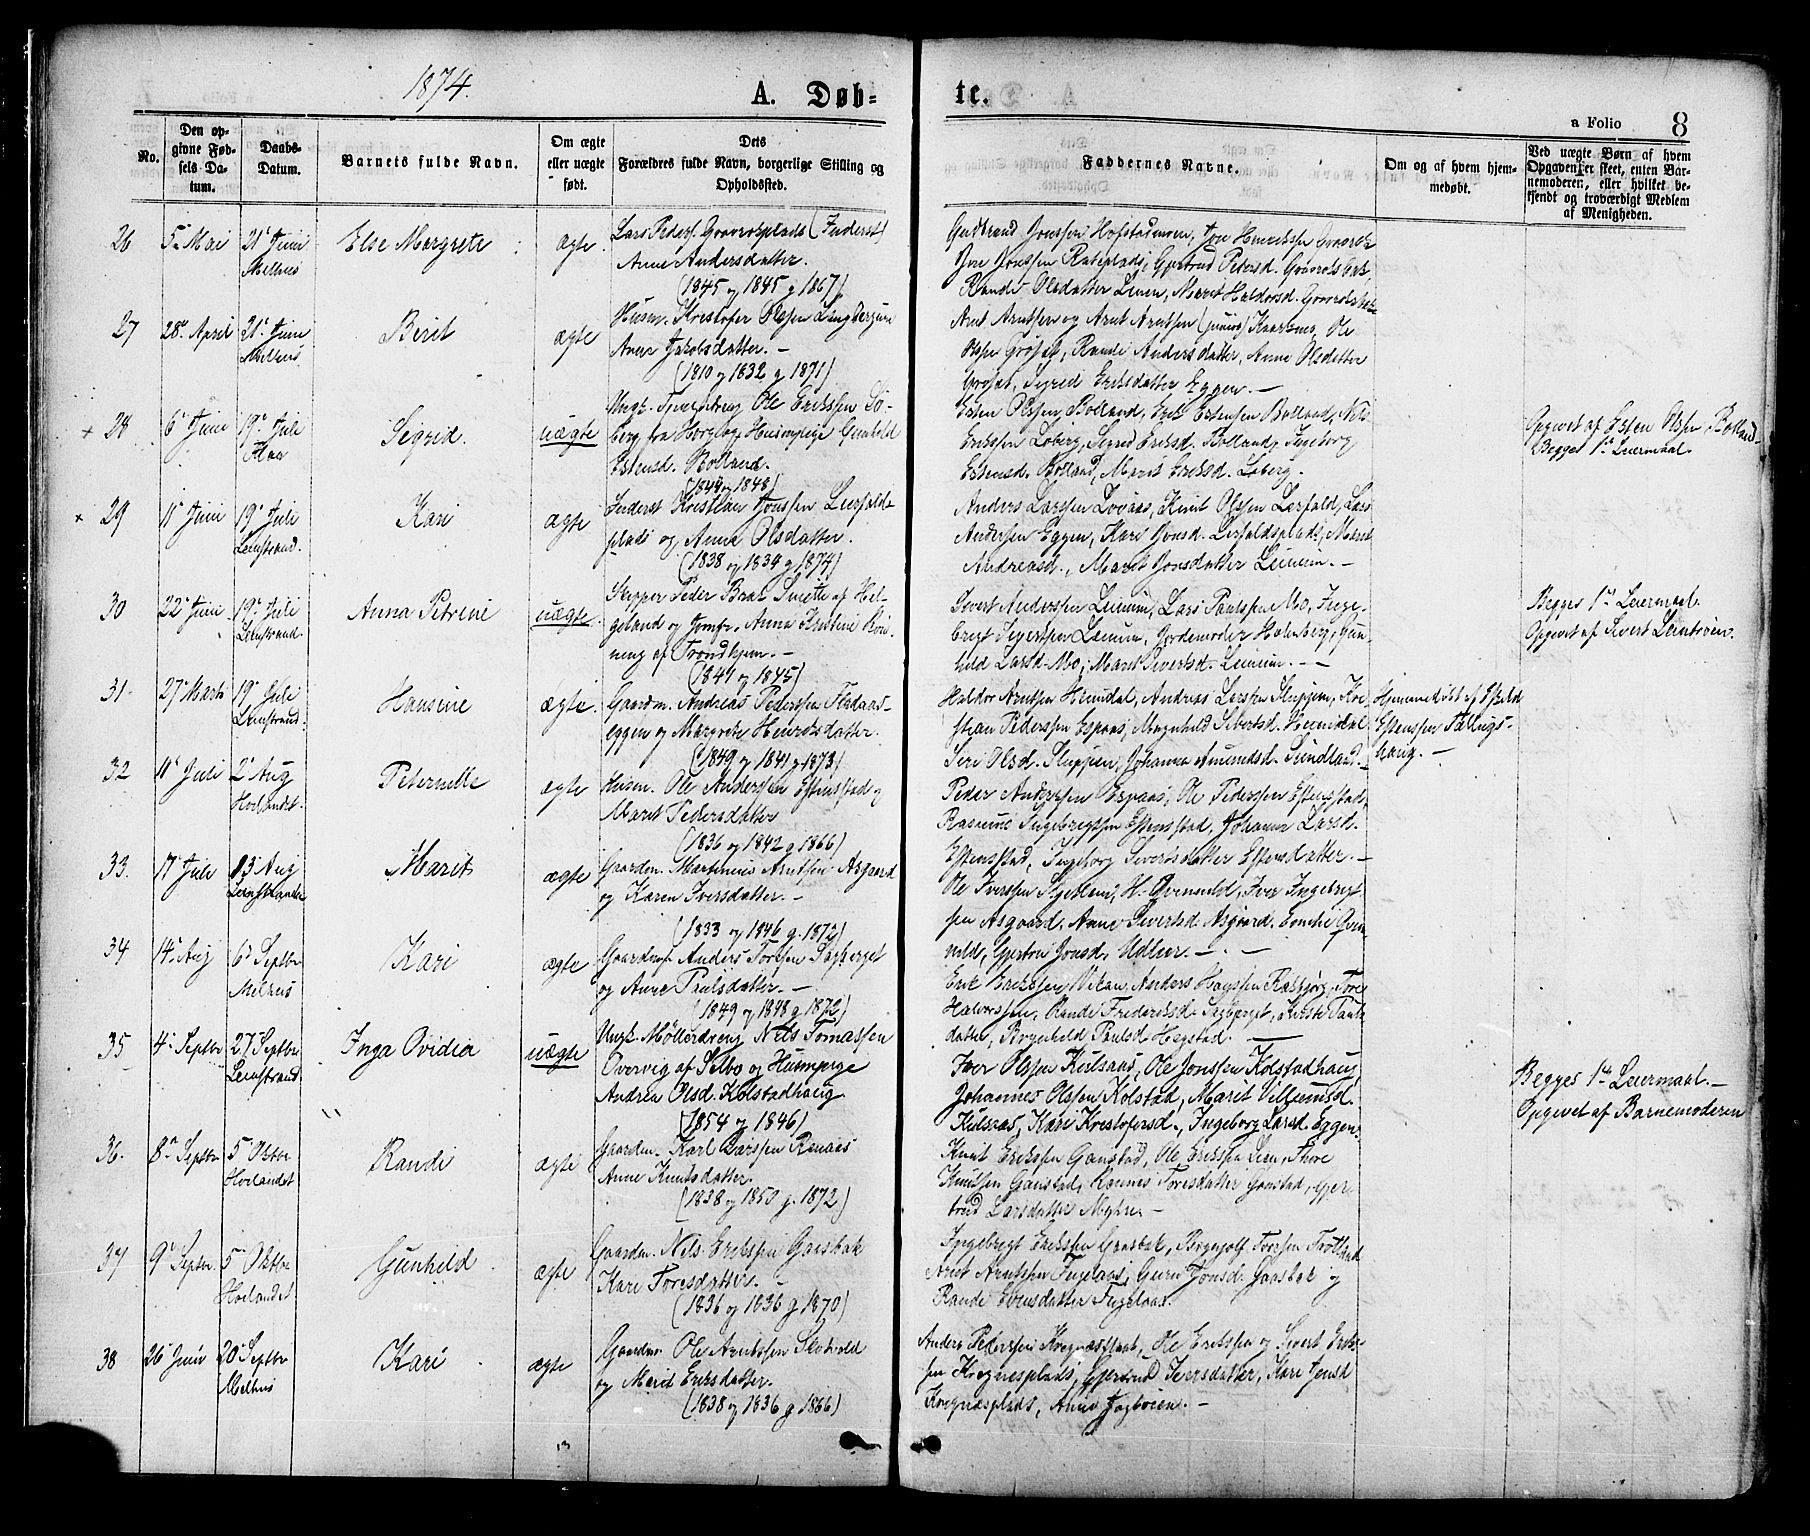 1874.
A. Døb-
te.
a Folio 8
No.
Den op-
givne Fød-
sels Da-
tum.
Daabs-
Datum.
Barnets fulde Navn.
Om ægte
eller uægte
født.
Dets
Forældres fulde Navn, borgerlige Stilling og
Opholdssted.
Faddernes Navne.
Om og af hvem hjem-
medøbt.
Ved uægte Børn af hvem
Opgaven er skeet, enten Bar-
nemoderen, eller hvilket be-
kjendt og troværdigt Medlem
af Menigheden.
26
5 Mai
21 Juni
Melhus
Else Margrete
ægte
Lars Peders. Graverokplads (Inderst)
Anne Andersdatter.
(1845 og 1845 g 1867)
Gudbrand Jonssen Hofstadmoen, Jon Henrikssen
Jon Jonssen Gjertrud Petersd.
Rande Olsdatter Maret Haldorsd.
27
28 April
21 Juni
Melhus
Berit
ægte
Husm. Kristofer Olssen
Anne Jakobsdatter. –
(1810 og 1832 g 1871)
Arnt Arntsen og Arnt Arntsen (junior) Ole
Olsen Rande Andersdatter, Anne Olsdatter
Sigrid Eriksdatter Eggen. –
× 28
6 Juni
19 Juli
Flaa
Segrid.
uægte
Ungk. Tjenesdreng Ole Erikssen Lø-
berg fra Horg og Huuspige Gunhild
Estensd. Bolland.
(1849 og 1848)
Esten Olssen Bolland, Erik Estensen Bolland, Nils
Erikssen Løberg, Sigrid Eriksd. Bolland, Ingeborg
Estensd. Bolland, Marit Eriksd. Løberg.
Opgivet af Esten Olssen Bolland –
Begges 1ste Leiermaal.
× 29
11 Juni
19 Juli
Leinstrand.
Kari
ægte
Inderst Kristian Jonssen Leerfalds-
plads og Anna Olsdatter.
(1838 og 1839 g 1874)
Anders Larssen Lovaas, Knut Olssen Lerfald, Lars
Andersen Eggen, Kari Jonsd. Lerfaldsplads, Maret
Andreasd., Maret Jonsdatter Leinum. –
30
22 Juni
19 Juli
Leinstrand.
Anna Petrine
uægte.
Skipper Peder Smitt af Hel-
geland og Jomfr. Anna Kristine Røn-
ning af Trondhjem. –
(1847 og 1845)
Sivert Anderssen Leinum, Lars Paulssen Mo, Inge-
brigt Leinum, Jordemoder Holmberg, Gun-
hild Larsd. Mo, Maret Sivertsd. Leinum. – –
Begges 1ste Leiermaal.
Opgivet af Sivert
31
27 Marts
19 Juli
Leinstrand.
Hansine
ægte.
Gaardm. Andreas Pederssen Flodaas-
eggen og Margrete Henriksdatter.
(1849 og 1841 g 1873)
Haldor Arntsen Heimdal, Andreas Larssen Sluppen, Kri-
stian Pederssen Espaas, Magnhild Sivertsd. Heimdal
Siri Olsd. Sluppen, Johanna Amundsd. Sundland. –
Hjemmedøbt af Eskild
Estenssen
haug. –
32
11 Juli
2 Aug
Hølandet.
Peternelle
ægte
Husm. Ole Anderssen Estensstad og
Maret Pedersdatter
(1836 og 1842 g 1866)
Peder Anderssen Espaas, Ole Pederssen Estensstad,
Rasmus Ingebregtsen Estensstad, Johanna Larsd.
Estensstad, Ingeborg Sivertsdatter Estensdatter. –
33.
17 Juli
13 Aug
Marit
ægte
Gaardm. Martinus Arntsen Asgaard
og Karen Iversdatter. –
(1833 og 1846 g. 1872)
Ole Iverssen H. Qvenild, Iver Ingebrigt-
sen Asgaard, Anne Sivertsd. Asgaard, Emilie Qve-
nild, Jonsd. Udleer. – –
34
14 Aug
6 Septbr
Melhus
Kari
ægte
Gaardm. Anders Torssen
og Anne Paulsdatter. –
(1849 og 1848 g 1872)
Erik Erikssen Vikan, Anders Tore
Halvorssen, Rande Frederiksd. Kirsti Pauls-
datter, Borgenhild Paulsd Hagstad. –
35
4 Septbr
27 Septbr
Leinstrand
Inga Ovidia
uægte
Ungk. Møllerdreng Nels Tomassen
Overvig af Selbo og Huuspige
Andrea Olsd. Kolstadhaug
(1854 og 1846)
Iver Olssen Kulsaas, Ole Jonssen Kolstadhaug,
Johannes Olssen Kolstad, Marit Villumsd.
Kulsaas, Kari Kristofersd., Ingeborg Larsd. Eggen.
Begges 1ste Leiermaal. –
Opgivet af Barnemoderen
36.
8 Septbr
5 Oktbr
Hølandet
Randi
ægte
Gaardm. Karl Larssen Rønaas
Anne Knutsdatter.
(1838 og 1850 g. 1872)
Knut Erikssen Gaustad, Ole Erikssen Thore
Knutssen Gaustad, Rannei Toresdatter Gaustad, Gjer-
trud Larsdatter Myhre. –
37
9 Septbr.
5 Oktbr
Hølandet
Gunhild
ægte
Gaardm. Nels Erikssen Gaasbak
Kari Toresdatter. –
(1836 og 1836 g 1870)
Ingebregt Erikssen Gaasbak, Torssen Trotland
Arnt Arntssen Guru Jonsd. Gaasbak og
Rande
38
26 Juni
20 Septbr
Melhus
Kari
ægte
Gaardm Ole Arntssen
og Marit Eriksdatter.
(1838 og 1836 g 1866)
Anders Pederssen Ole Erikssen og Sivert Eriks-
sen Krognesplads, Gjertrud Iversdatter, Kari Jensd
Krognesplads, Anne